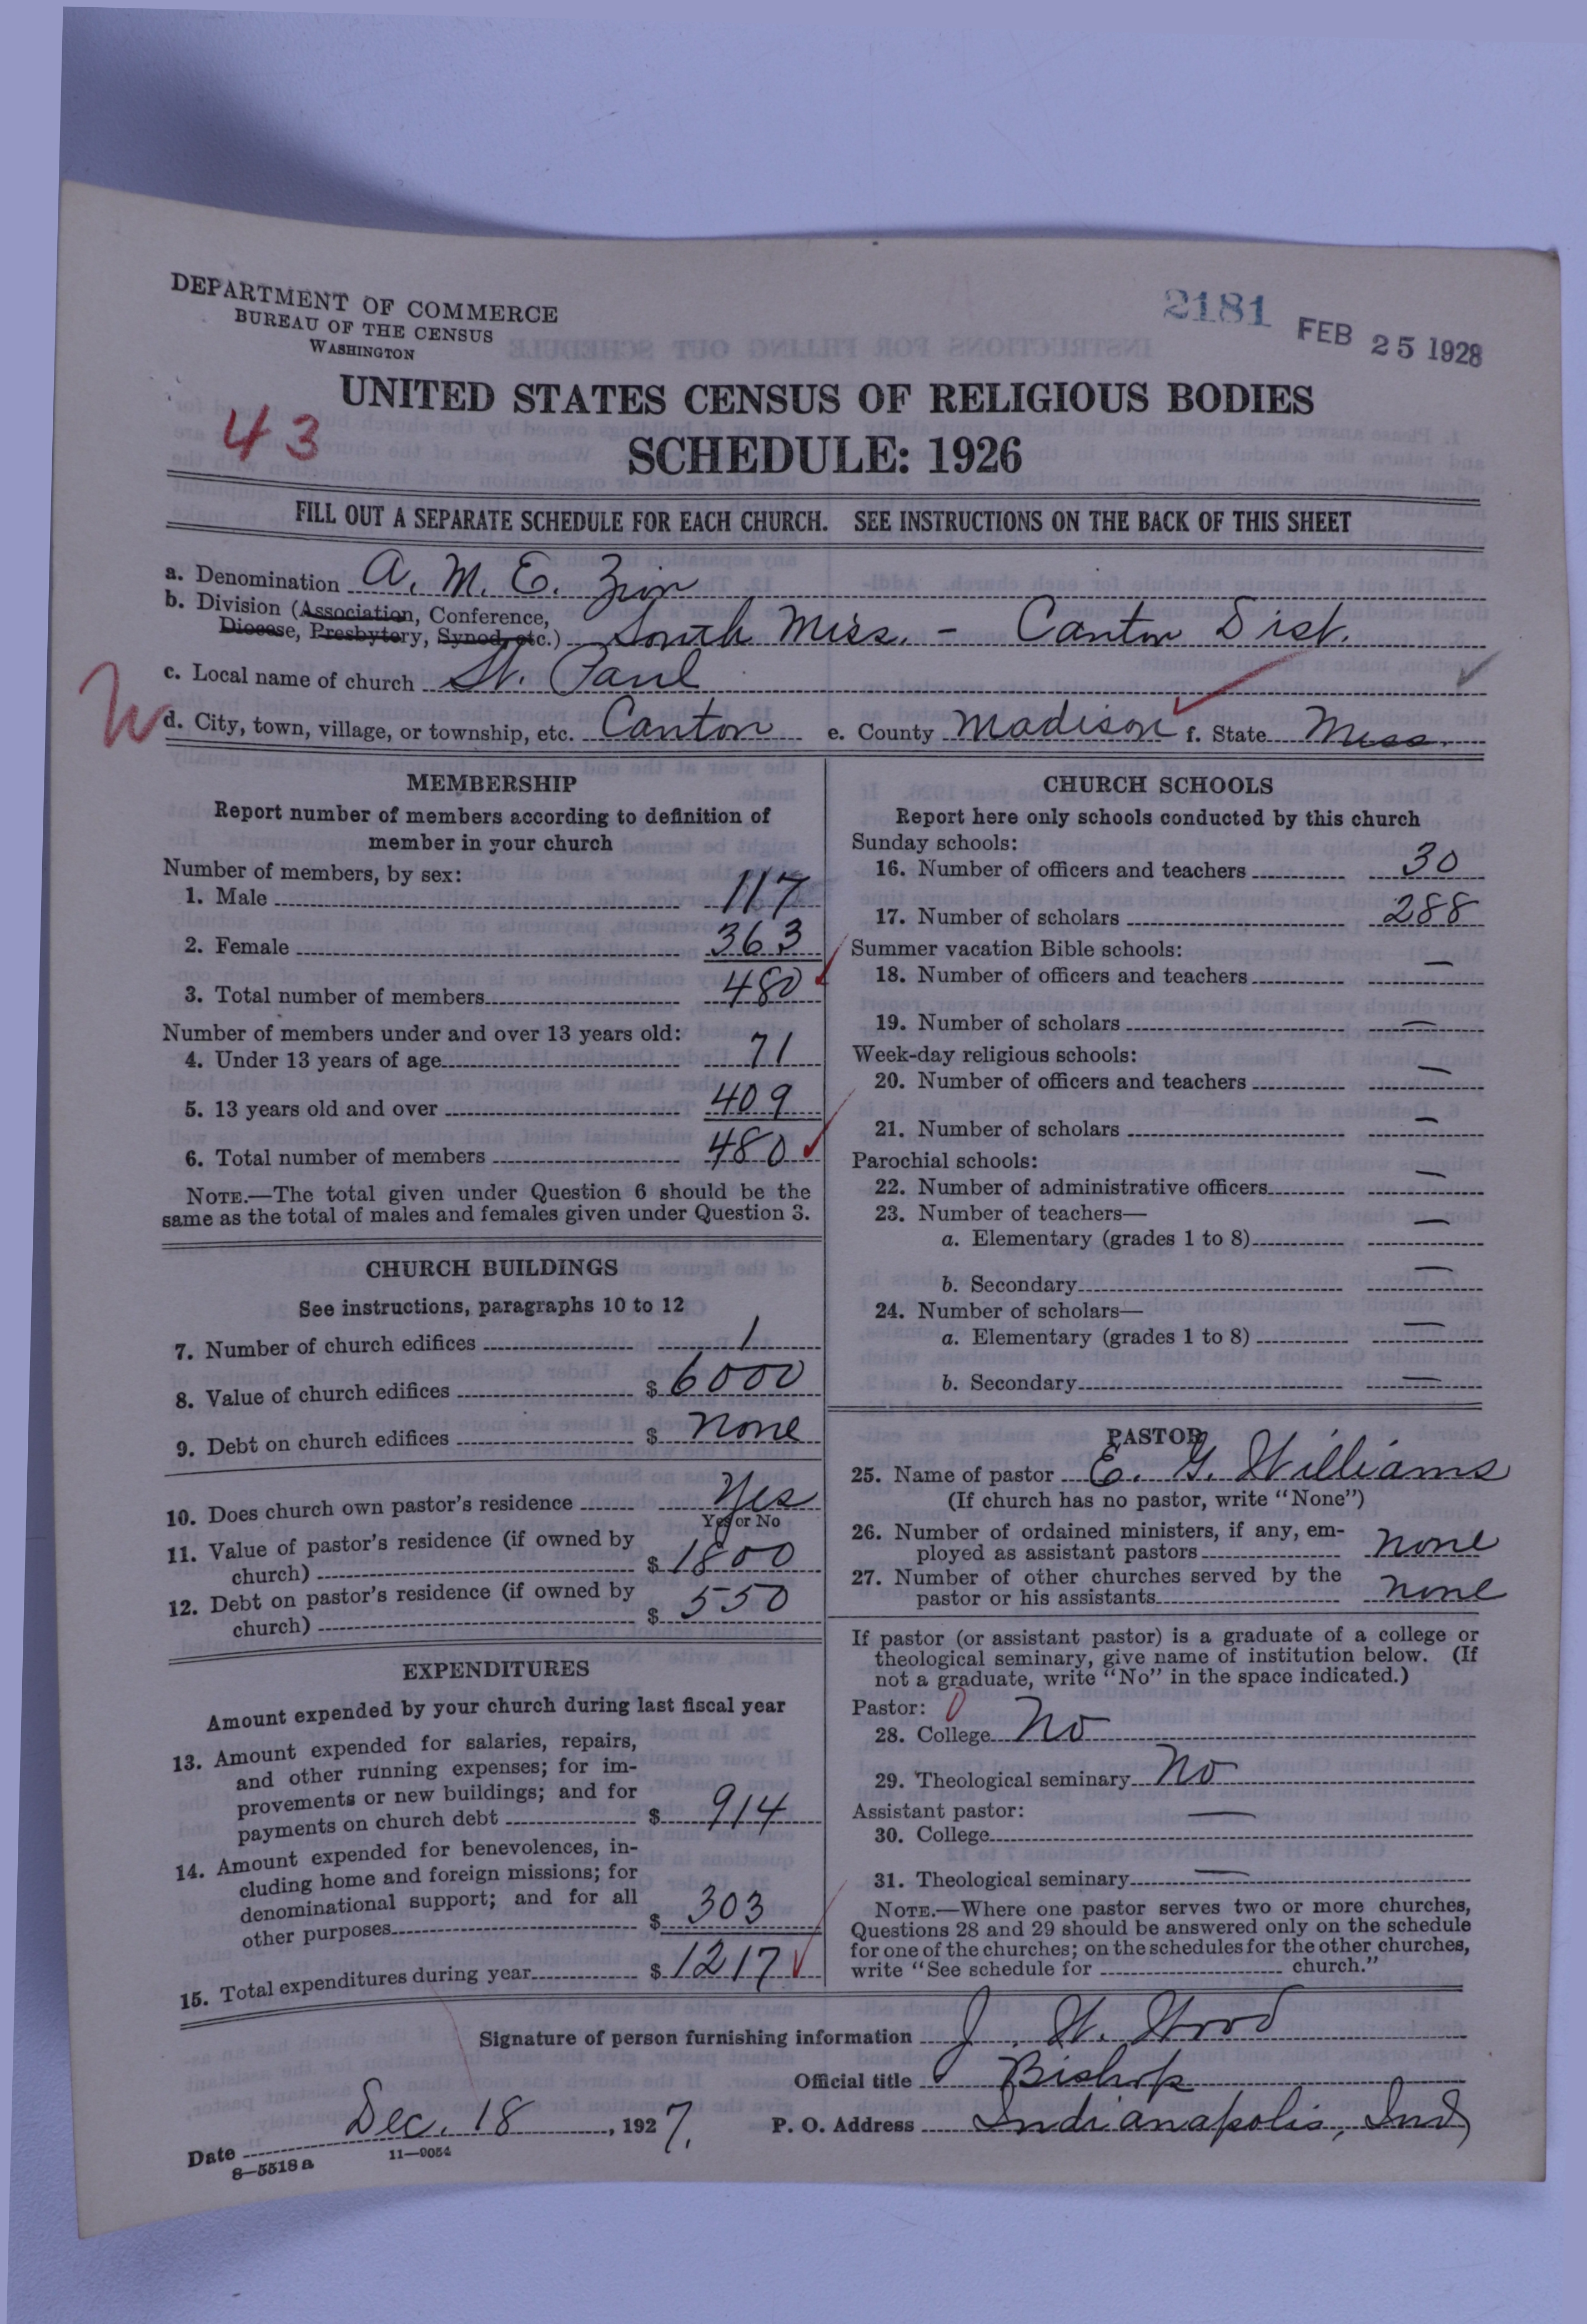 DEPARTMENT OF COMMERCE
BUREAU OF THE CENSUS
WASHINGTON
2181 FEB 25 1928
UNITED STATES CENSUS OF RELIGIOUS BODIES
43
SCHEDULE: 1926
FILL OUT A SEPARATE SCHEDULE FOR EACH CHURCH. SEE INSTRUCTIONS ON THE BACK OF THIS SHEET
a. Denomination A. M. E. Zion
b. Division (Association, Conference,
Diocese, Presbytery, Synod, etc.) South Miss. - Canton Dist.
c. Local name of church St. Paul
d. City, town, village, or township, etc. Canton e. County Madison f. State Miss.
MEMBERSHIP
Report number of members according to definition of
member in your church
Number of members, by sex:
1. Male 117
2. Female 363
3. Total number of members 480
Number of members under and over 13 years old:
4. Under 13 years of age 71
5. 13 years old and over 409
6. Total number of members 480
NOTE.—The total given under Question 6 should be the
same as the total of males and females given under Question 3.
CHURCH BUILDINGS
See instructions, paragraphs 10 to 12
7. Number of church edifices 1
8. Value of church edifices $ 6000
9. Debt on church edifices $ none
10. Does church own pastor's residence Yes
Yes or No
11. Value of pastor's residence (if owned by
church) $ 1800
12. Debt on pastor's residence (if owned by
church) $ 550
EXPENDITURES
Amount expended by your church during last fiscal year
13. Amount expended for salaries, repairs,
and other running expenses; for im-
provements or new buildings; and for
payments on church debt $ 914
14. Amount expended for benevolences, in-
cluding home and foreign missions; for
denominational support; and for all
other purposes $ 303
15. Total expenditures during year $ 1217
CHURCH SCHOOLS
Report here only schools conducted by this church
Sunday schools:
16. Number of officers and teachers 30
17. Number of scholars 288
Summer vacation Bible schools:
18. Number of officers and teachers —
19. Number of scholars —
Week-day religious schools:
20. Number of officers and teachers —
21. Number of scholars —
Parochial schools:
22. Number of administrative officers —
23. Number of teachers—
a. Elementary (grades 1 to 8) —
b. Secondary —
24. Number of scholars—
a. Elementary (grades 1 to 8) —
b. Secondary —
PASTOR
25. Name of pastor E. G. Williams
(If church has no pastor, write "None")
26. Number of ordained ministers, if any, em-
ployed as assistant pastors none
27. Number of other churches served by the
pastor or his assistants none
If pastor (or assistant pastor) is a graduate of a college or
theological seminary, give name of institution below. (If
not a graduate, write "No" in the space indicated.)
Pastor: 0
28. College No
29. Theological seminary No
Assistant pastor:
30. College —
31. Theological seminary —
NOTE.—Where one pastor serves two or more churches,
Questions 28 and 29 should be answered only on the schedule
for one of the churches; on the schedules for the other churches,
write "See schedule for church."
Signature of person furnishing information J. W. Wood
Official title Bishop
Date Dec. 18, 1927. P. O. Address Indianapolis, Ind
8—5518a 11—9054